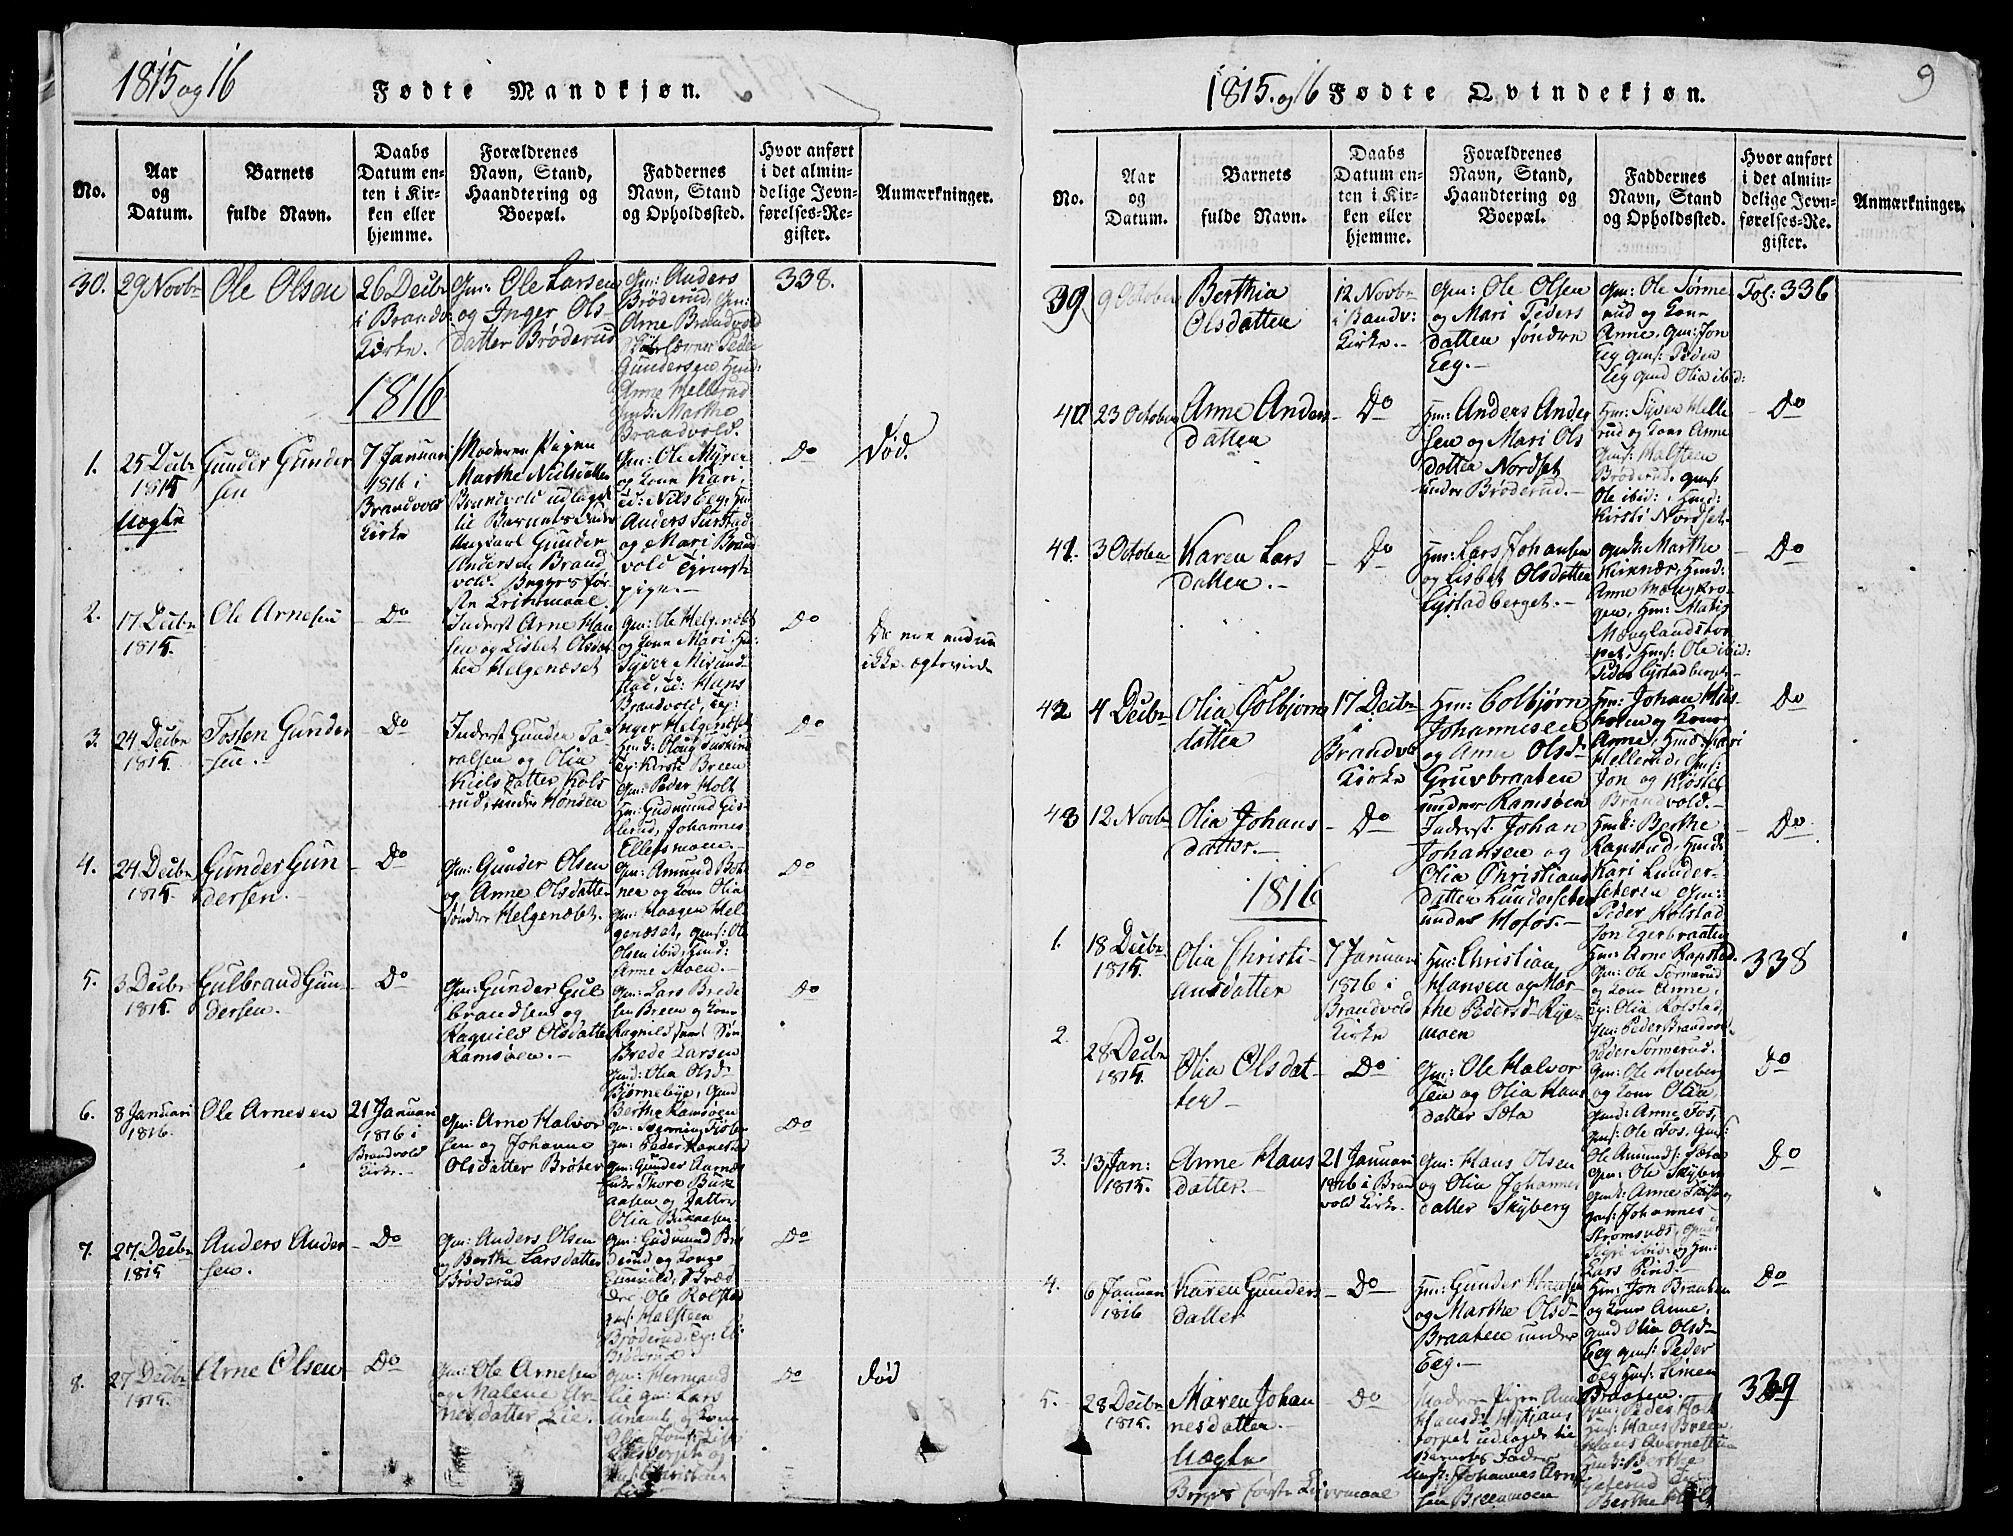 1815 og 16
Fødte Mandkjøn.
No.
Aar
og
Datum.
Barnets
fulde Navn.
Daabs
Datum en-
ten i Kir-
ken eller
hjemme.
Forældrenes
Navn, Stand,
Haandtering og
Boepæl.
Faddernes
Navn, Stand
og Opholdssted.
Hvor anført
i det almin-
delige Jevn-
førelses-Re-
gister.
Anmærkninger.
30.
29 Novbr
Ole Olsen
26 Decbr
i Brandv:
Kirke.
Gm: Ole Larsen
og Inger Ols
datter Brøderud
Gm: Anders
Brøderud, Gm:
Arne Brandvold
Peder
Gundersen
Arne Hellerud
Marthe
Brandvold.
338.
1816
1.
25 Decbr
1815
Uægte
Gunder Gunder
sen
7 Januari
1816 i
Brandvold
Kirke
Moderen Pigen
Marthe Nielsdatter
Brandvold udlagde
til Barnets Fader
Ungkarl Gunder
Andersen Brand
vold. Begges før
ste Leiermaal.
Gm: Ole Myren
og Kone Kari,
id: Nils Eeg,
Anders
og Mari Brand
vold
pige.
Do
Død.
2.
17 Decbr
1815.
Ole Arnesen
Do
Inderst Arne Han
sen og Lisbet Olsdat
ter Helgenæset
Gm: Ole Helgenæset
og Kone Mari,
Syver
Hans
Brandvold,
Inger Helgenæset
Do
De ere endnu
ikke ægteviede
3.
24 Decbr
1815.
Tosten Gunder
sen.
Do
Inderst Gunder To
ralsen og Olia
Kields datter Kols
rud, under Hønden
Kirsti Breen
Gm: Peder Holt
Hm: Gudmund Gis
lerud, Johannes
Ellefsmoen.
Do
4.
24 Decbr
1815.
Gunder Gun
dersen.
Do
Gm: Gunder Olsen
og Anne Olsdatter
søndre Helgenæbet.
Gm: Amund
og Kone Olia
Gm: Haagen Hel
genæset, Gms: Ole
Olsen ibid,
Arne Moen.
Do
5.
3 Decbr
1815.
Gulbrand Gun
dersen.
Do
Gm: Gunder Gul
brandsen og
Ragnild Olsdatter
Ramsøen.
Gm: Lars Brede
sen Breen og Kone
Ragnild samt Søn
Brede Larsen
Gmd: Olia Olsd
Bjørnebye, Gmd
Berthe Ramsøen
Do
6.
8 Januari
1816.
Ole Arnesen
21 Januari
1816 i
Brandvold
Kirke.
Gm: Arne Halvor
sen og Johanne
Olsdatter Brøter
Gm: Peder
Gm: Gunder Aarnæs
Enke Thore
aaten og Datter
Olia
Do
7.
27 Decbr
1815
Anders Ander
sen.
Do
Gm: Anders Olsen
og Berthe Larsdatter
Brøderud
Gm: Gudmund Brø
derud og Kone
Gunild,
Ole Kolstad
Halsteen
Brøderud,
Brøderud.
Do
8.
27 Decbr
1815.
Arne Olsen
Do
Gm: Ole Arnesen
og Malene Ar
nesdatter Lie.
Gm: Hermand
Lie Gm: Lars
og Kone
Olia
og
Do
død
1815. og 16
Fødte Qvindekjøn.
9
No.
Aar
og
Datum.
Barnets
fulde Navn.
Daabs
Datum en-
ten i Kir-
ken eller
hjemme.
Forældrenes
Navn, Stand,
Haandtering og
Boepæl.
Faddernes
Navn, Stand
og Opholdssted.
Hvor anført
i det almin-
delige Jevn-
førelses-Re-
gister.
Anmærkninger.
39
9 October
Berthia
Olsdatter
12 Novbr
i Brandv:
Kirke.
Gm: Ole Olsen
og Mari Peders
datter søndre
Eeg.
Gm: Ole Sørme
rud og Kone
Anne, Gm: Jon
Eeg Gms: Peder
Eeg Gmd Olia ibid:
Fol: 336
40
23 October
Anne Anders
datter
Do
Hm: Anders Ander
sen og Mari Ols
datter Nordset
under Brøderud.
Hm: Syver Helle
rud og Kone Anne
Gms: Halsteen
Brøderud, Gms:
Ole ibid:, Hmd:
Kirsti Nordset
Do
41.
3 October
Karen Lars
datter.
Do
Hm: Lars Johansen
og Lisbet Olsdatter
Lystadberget.
Gmk: Marthe
Kirknær, Hmd:
Anne
gen, Hm: Mathis
pet, Hms: Ole ibid:
Peder Lystadberget
Do
42
4 Decbr
Olia Colbjørns
datter
17 Decbr
i
Brandvold
Kirke
Hm: Colbjørn
Johannesen
og Anne Olsd
Gruvbraaten
under Ramsøen
Hm: Johan
og Kone
Anne, Hmd: Kari
Hellerud, Gms:
Jon og
Brandvold.
Do
43
12 Novbr
Olia Johans
datter.
Do
Inderst: Johan
Johansen og
Olia Christians
datter Lundersæter
under Hofos.
Hmk: Berthe
Rapstad, Hmd:
Kari Lunder-
seteren Gm:
Peder Kolstad
Jon Egerbraaten
Do.
1816
1.
18 Decbr
1815.
Olia Christi
ansdatter
7 Januari
1816 i
Brandvold
Kirke
Hm: Christian
Hansen og Mar
the Pedersd Rye-
moen
Hm: Arne Rapstad.
Gm: Ole Sørmerud
og Kone Anne,
Olia Kolstad,
Gm: Peder Brandvold
Peder Sørmerud.
338
2.
28 Decbr
1815.
Olia Olsdat
ter
Do
Gm: Ole Halvor
sen og Olia Hans
datter Sæta
Gm: Ole
og Kone Olia,
Gmd: Anne Fos,
Gms: Ole Fos, Gms:
Ole Amunds: Sæta
Do
3.
13 Jan:
1815.
Anne Hans
datter.
21 Januari
1816 i Brand
vold Kirke.
Gm: Hans Olsen
og Olia Johannes
datter Skyberg
Gm: Ole Skyberg
Gmk: Anne
Gms: Johannes
Strømsnæs, Gmd:
Sigri ibid: og Hm:
Lars
Do
4.
6 Januari
1816
Karen Gunders
datter
Do
Hm: Gunder Hansen
og Marthe Olsd
Braaten under
Eeg.
Hm: Jon Braaten
og Kone Anne,
Gmd Olia Olsd
Eeg Gms: Peder
Eeg Hms: Simen
Braaten.
Do
5.
28 Decbr
1815.
Maren Johan
nesdatter.
Uægte
Begges første Leiermaal
Do
Moder Pigen
Hansd:
torpet udlagde til
Barnets Fader
Ungk: Johannes Arne
sen Breenmoen
Gm: Peder Holt
Hms: Hans Breen,
Hans
Gmk: Berthe
Gjeterud
Berthe
339